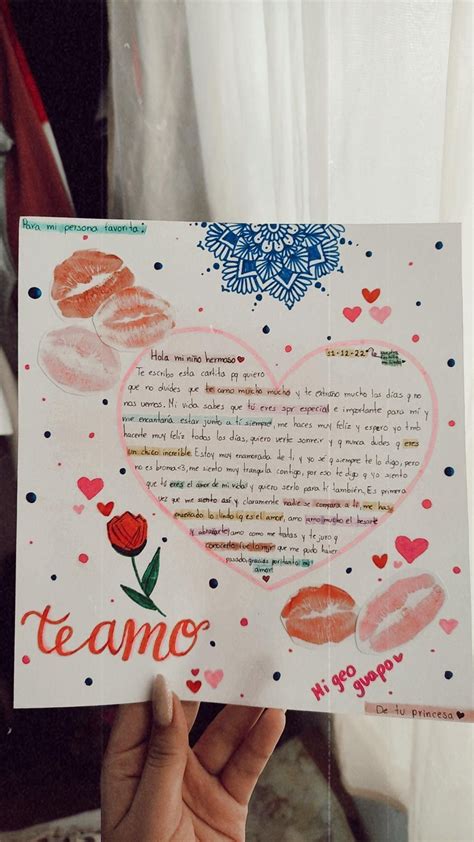 Para mi persona favorita:
Hola mi niño hermoso
11-12-22
Te escribo esta cartita pq quiero
que no dudes que te amo mucho mucho y te extraño mucho los días q no
nos vemos. Mi vida sabes que tú eres spr especial e importante para mí y
me encantaría estar junto a ti siempre, me haces muy feliz y espero yo tmb
hacerte muy feliz todos los días, quiero verte sonreír y q nunca dudes q eres
un chico increíble. Estoy muy enamorada de ti y yo sé q siempre te lo digo, pero
no es broma<3, me siento muy tranquila contigo, por eso te digo q yo siento
que tú eres el amor de mi vida y quiero serlo para ti también. Es primera
vez que me siento así y claramente nadie se compara a ti, me has
enseñado lo lindo q es el amor, amo mucho el besarte
y abrazarte, amo como me tratas y te juro q
conocerte fue lo mjr que me pudo haber
pasado, gracias por tanto mi
amor!
te amo
Mi geo
guapo
De tu princesa